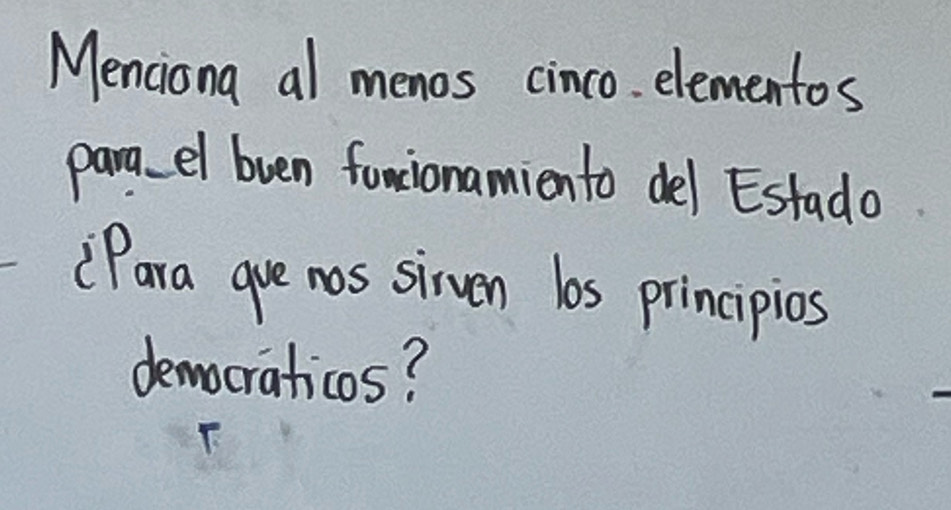 Menciona al menos cinco elementos
para el buen funcionamiento del Estado
¿Para que nos sirven los principios
democráticos?